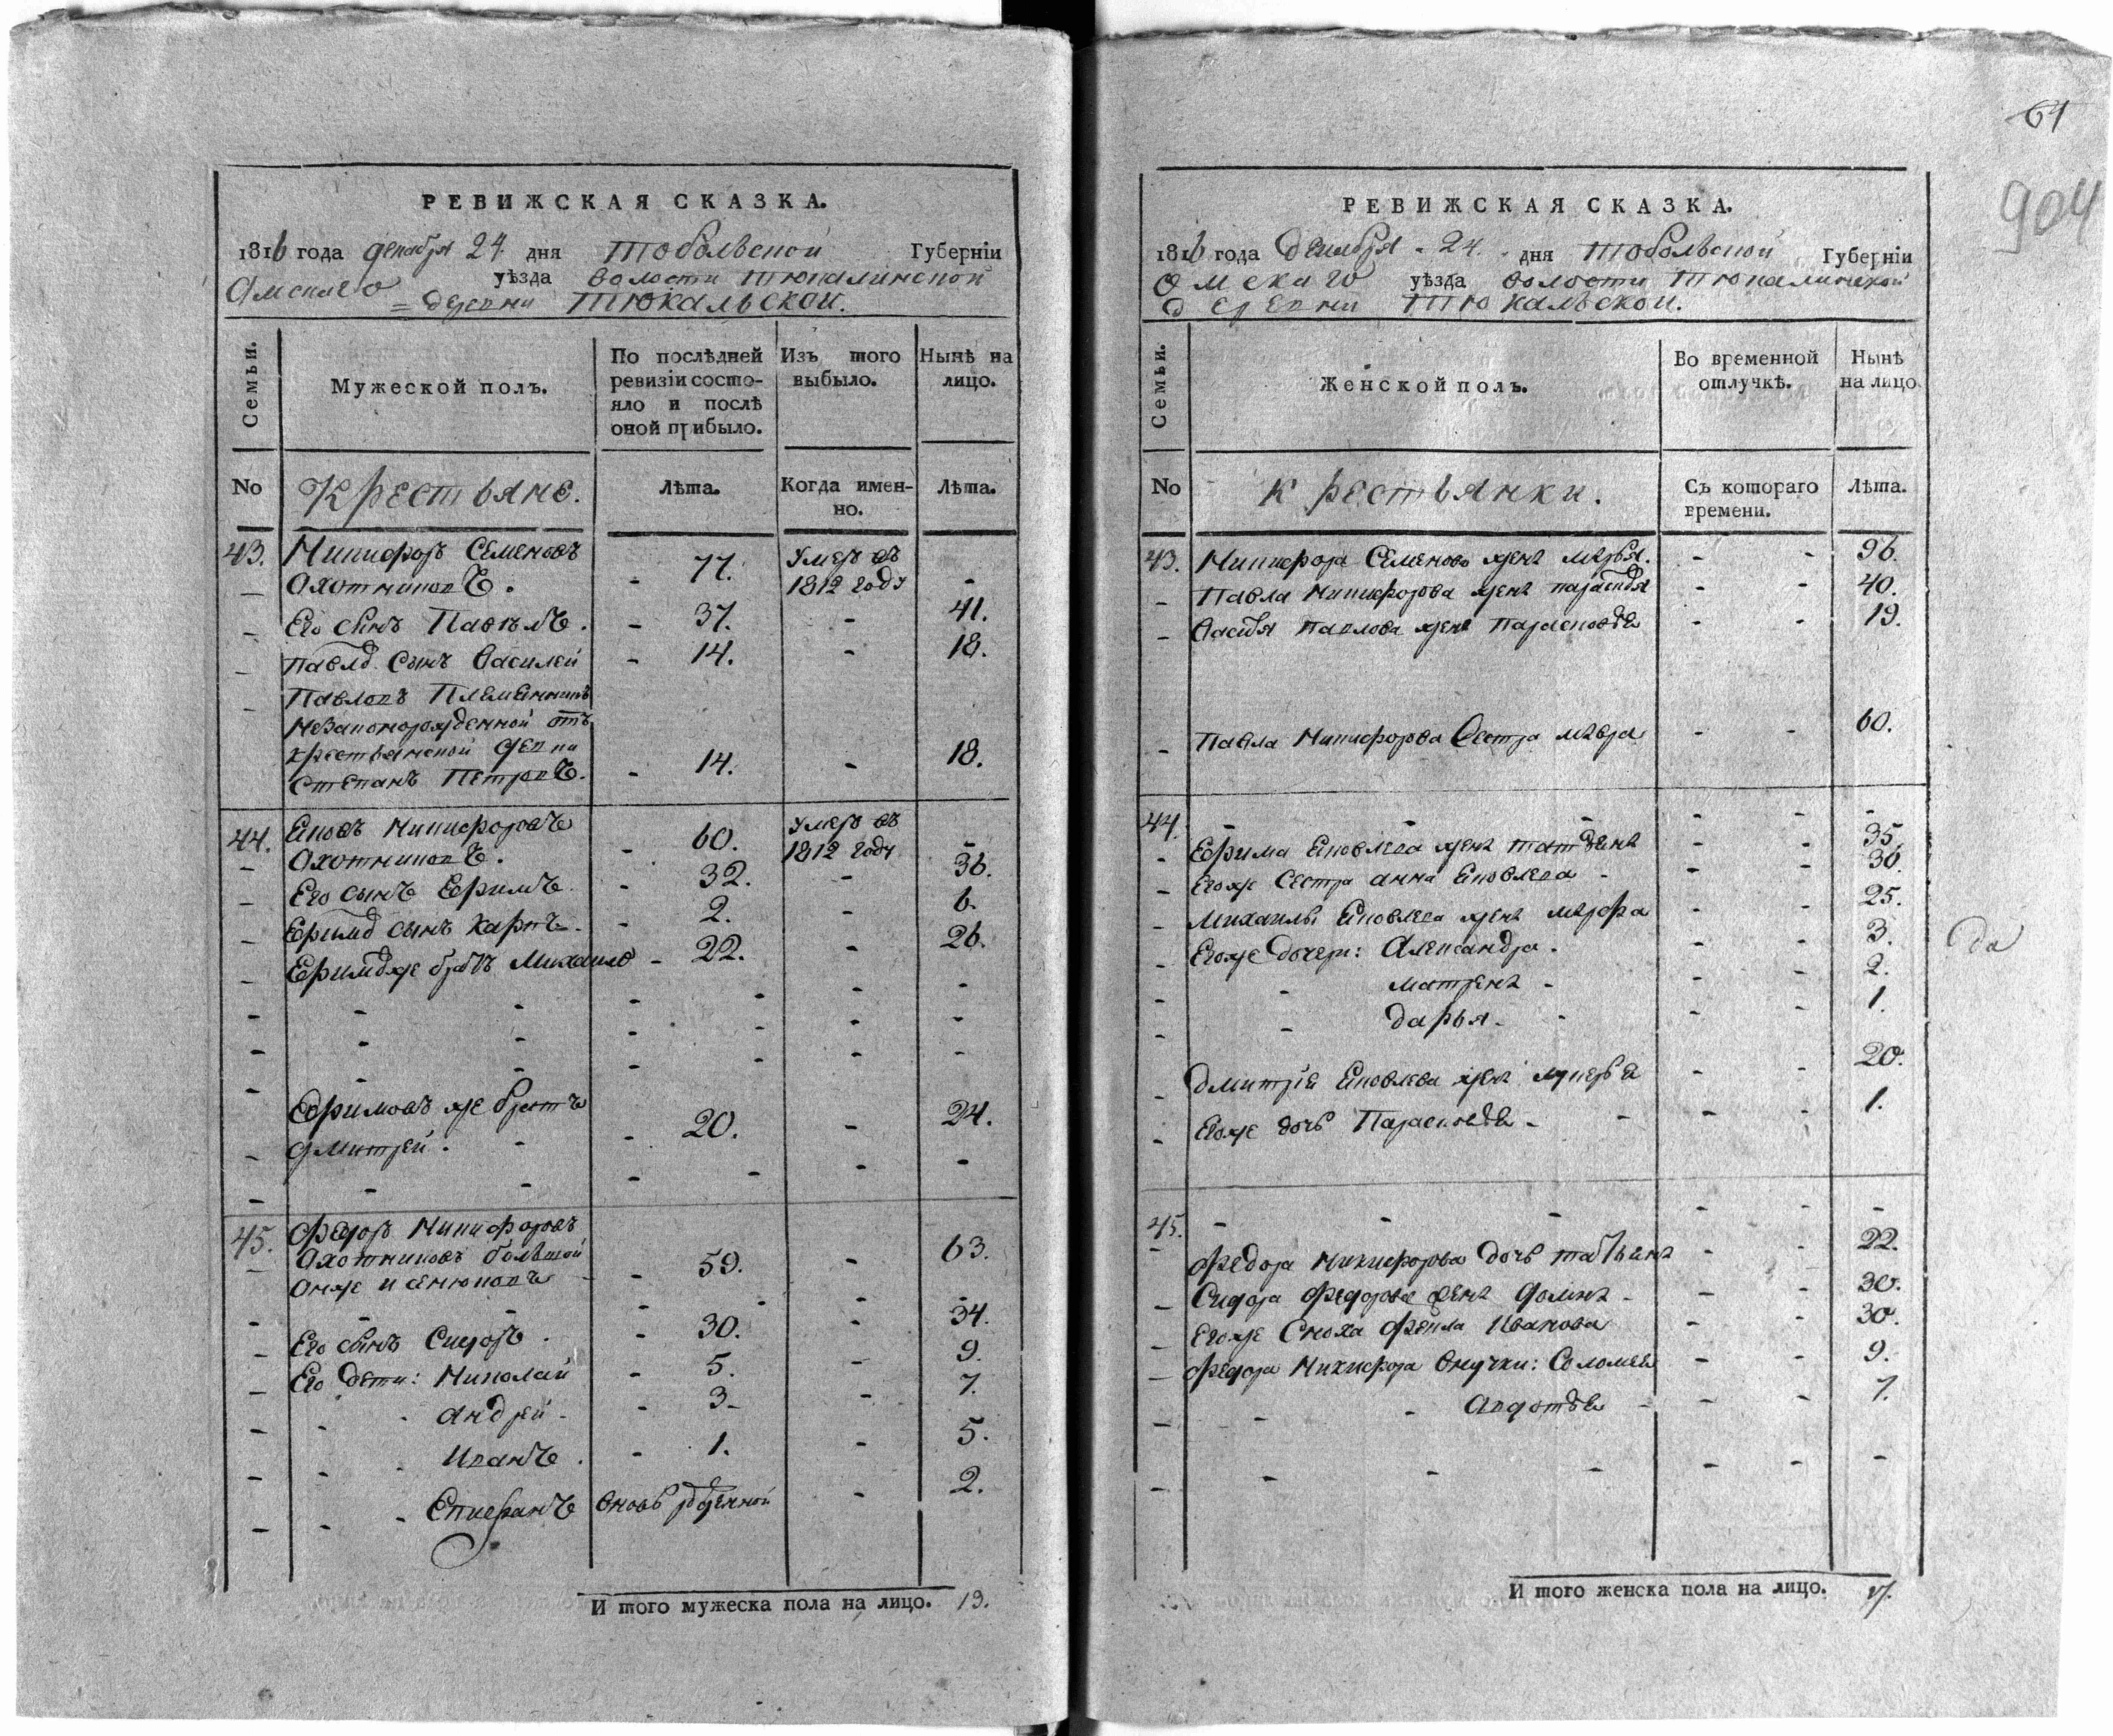 РЕВИЖСКАЯ СКАЗКА.
1816 года декабря 24 дня Тобольской Губерніи
Омскаго уѣзда волости Тюкалинской
= деревни Тюкальской.
Семьи.
Мужеской полъ.
По послѣдней ревизіи состо-
яло и послѣ
оной прибыло.
Изъ того
выбыло.
Нынѣ на
лицо.
No
Крестьяне.
Лѣта.
Когда имен-
но.
Лѣта.
43. Никифоръ Семеновъ
Охотниковъ. - 77. Умеръ въ 1812 году -
Его сынъ Павелъ. - 37. - 41.
Павла сынъ Василей - 14. - 18.
Павловъ Племянникъ
Незаконорожденной отъ
крестьянской девки
Степанъ Петровъ. - 14. - 18.
44. Яковъ Никифоровъ
Охотниковъ. - 60. Умеръ въ 1812 году -
Его сынъ Ефимъ - 32. - 36.
Ефима сынъ Карпъ. - 2. - 6.
Ефима же братъ Михайло - 22. - 26.
Ефимовъ же братъ
Дмитрей. - 20. - 24.
45. Федоръ Никифоровъ
Охотниковъ большой
онже и - 59. - 63.
Его сынъ Сидоръ. - 30. - 34.
Его дети: Николай - 5. - 9.
Андрей - 3 - 7.
Иванъ. - 1. - 5.
Епифанъ вновь рожденной - 2.
И того мужеска пола на лицо. 13.
61
904
РЕВИЖСКАЯ СКАЗКА.
1816 года декабря 24. дня Тобольской Губерніи
Омскаго уѣзда волости Тюкалинской
деревни Тюкальской.
Семьи.
Женской полъ.
Во временной
отлучкѣ.
Нынѣ
на лицо
No
Крестьянки.
Съ котораго
времени.
Лѣта.
43. Никифора Семенова жена Марья. - - 96.
Павла Никифорова жена - - 40.
Василья Павлова жена Парасковья - - 19.
Павла Никифорова Сестра Мавра - - 60.
44. - - - - - -
Ефима Яковлева жена Татьяна - - 35.
Егоже Сестра Анна Яковлева - - 30.
Михайлы Яковлева жена Марфа - - 25.
Егоже Дочери: Александра. - - 3.
Матрена - - - 2.
Дарья. - - - 1.
Дмитрія Яковлева жена Лукерья - - 20.
Егоже дочь Парасковья - - - 1.
да
45. - - - - - -
Федора Никифорова Дочь Татьяна - - 22.
Сидора Федорова жена Домна - - - 30.
Егоже Сноха Фекла Иванова - - 30.
Федора Никифора Внучки: Соломея - - 9.
Авдотья - - - 7.
И того женска пола на лицо. 17.